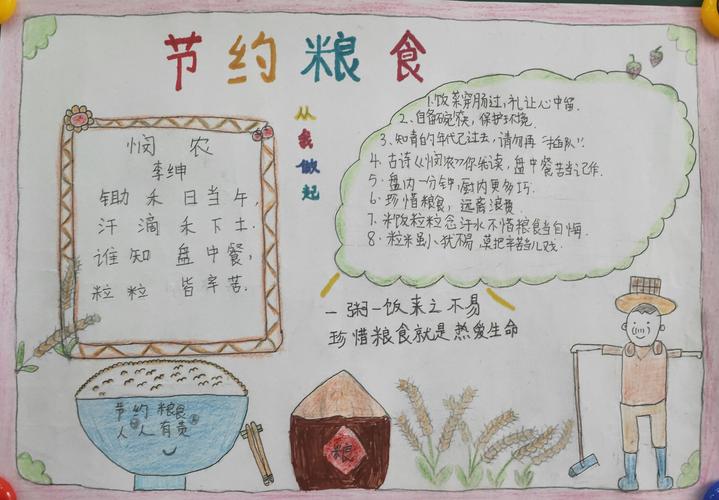 节约粮食
从我做起
悯农
李绅
锄禾日当午,
汗滴禾下土.
谁知盘中餐,
粒粒皆辛苦.
1.饭菜穿肠过,礼让心中留.
2、自备碗筷,保护环境.
3、知青的年代已过去,请勿再"插队".
4、古诗《悯农》你先读,盘中餐苦当记作.
5、盘内一分钟,厨内更多巧.
6、珍惜粮食,远离浪费.
7、米饭粒粒念汗水不惜粮食当自悔.
8、粒米虽小犹不易,莫把辛苦当儿戏.
一粥一饭来之不易
珍惜粮食就是热爱生命
节约粮食
人人有责
粮